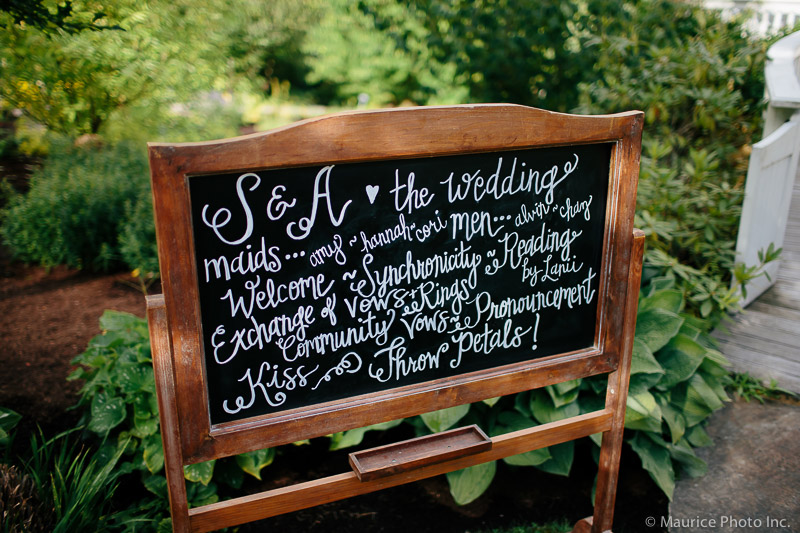 S & A ♥ the wedding
maids... amy ~ hannah ~ cori men... alvin ~ chay
Welcome ~ Synchronicity ~ Reading
by Lanii
Exchange of Vows + Rings
Community Vows ~ Pronouncement
Kiss ~ Throw Petals!
© Maurice Photo Inc.